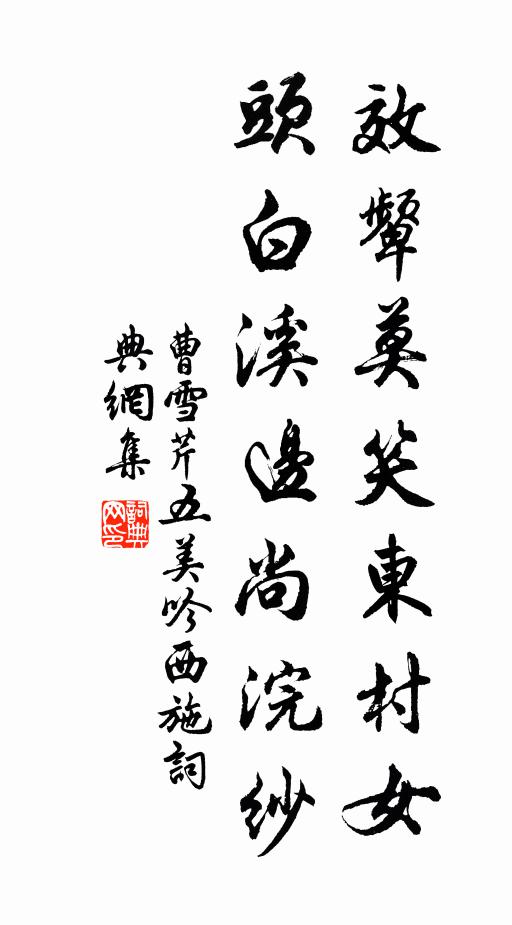 效顰莫笑東村女
頭白溪邊尚浣紗
曹雪芹五美吟西施詞
典網集
詞典网印